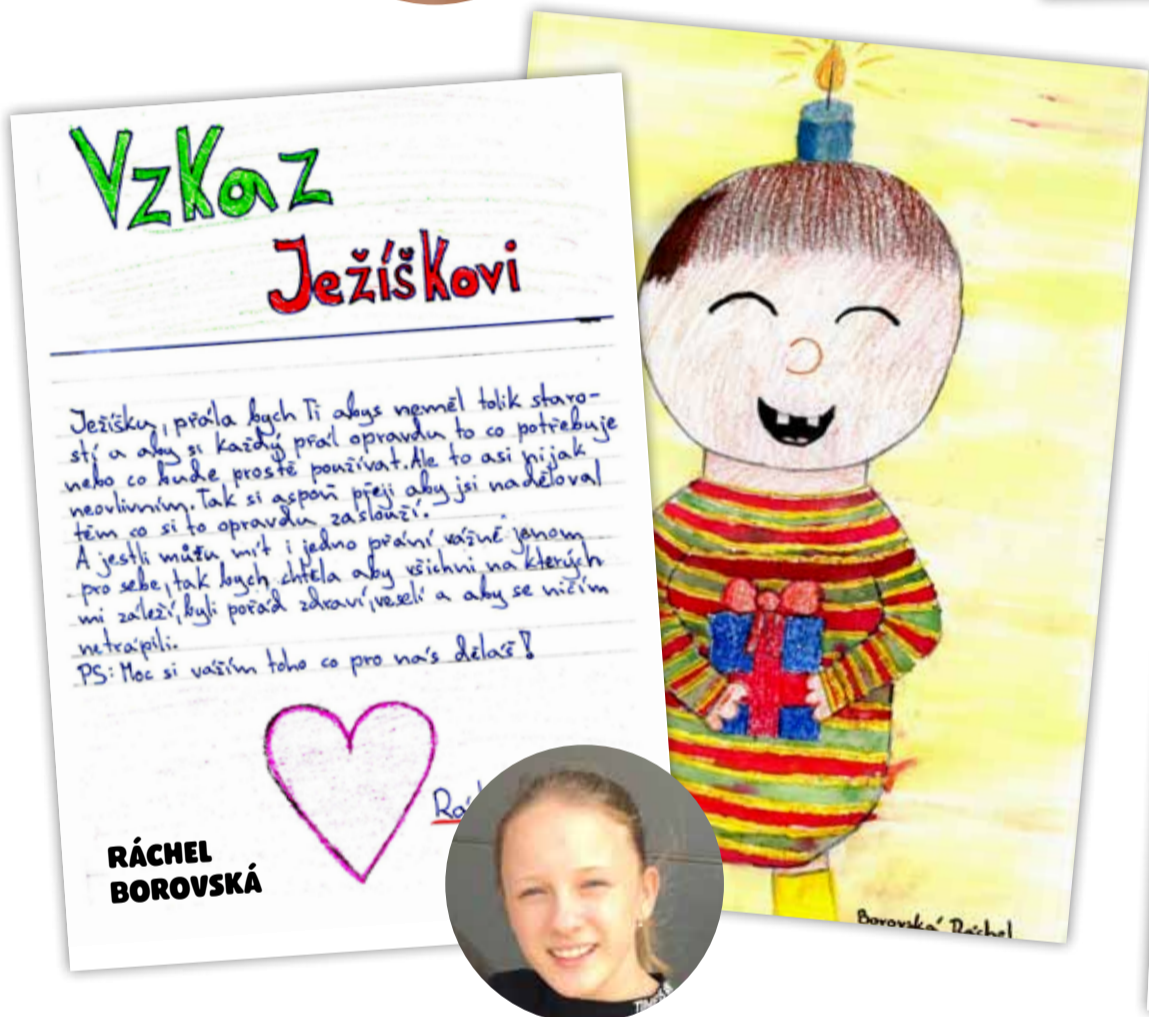 Vzkaz
Ježíškovi
Ježíšku, přála bych Ti abys neměl tolik staro-
stí a aby si každý přál opravdu to co potřebuje
nebo co bude prostě používat. Ale to asi nijak
neovlivním. Tak si aspoň přeji aby jsi naděloval
těm co si to opravdu zaslouží.
A jestli můžu mít i jedno přání vážně jenom
pro sebe, tak bych chtěla aby všichni na kterých
mi záleží, byli pořád zdraví, veselí a aby se ničím
netrápili.
PS: Moc si vážím toho co pro nás děláš!
RÁCHEL
BOROVSKÁ
Borovská Ráchel